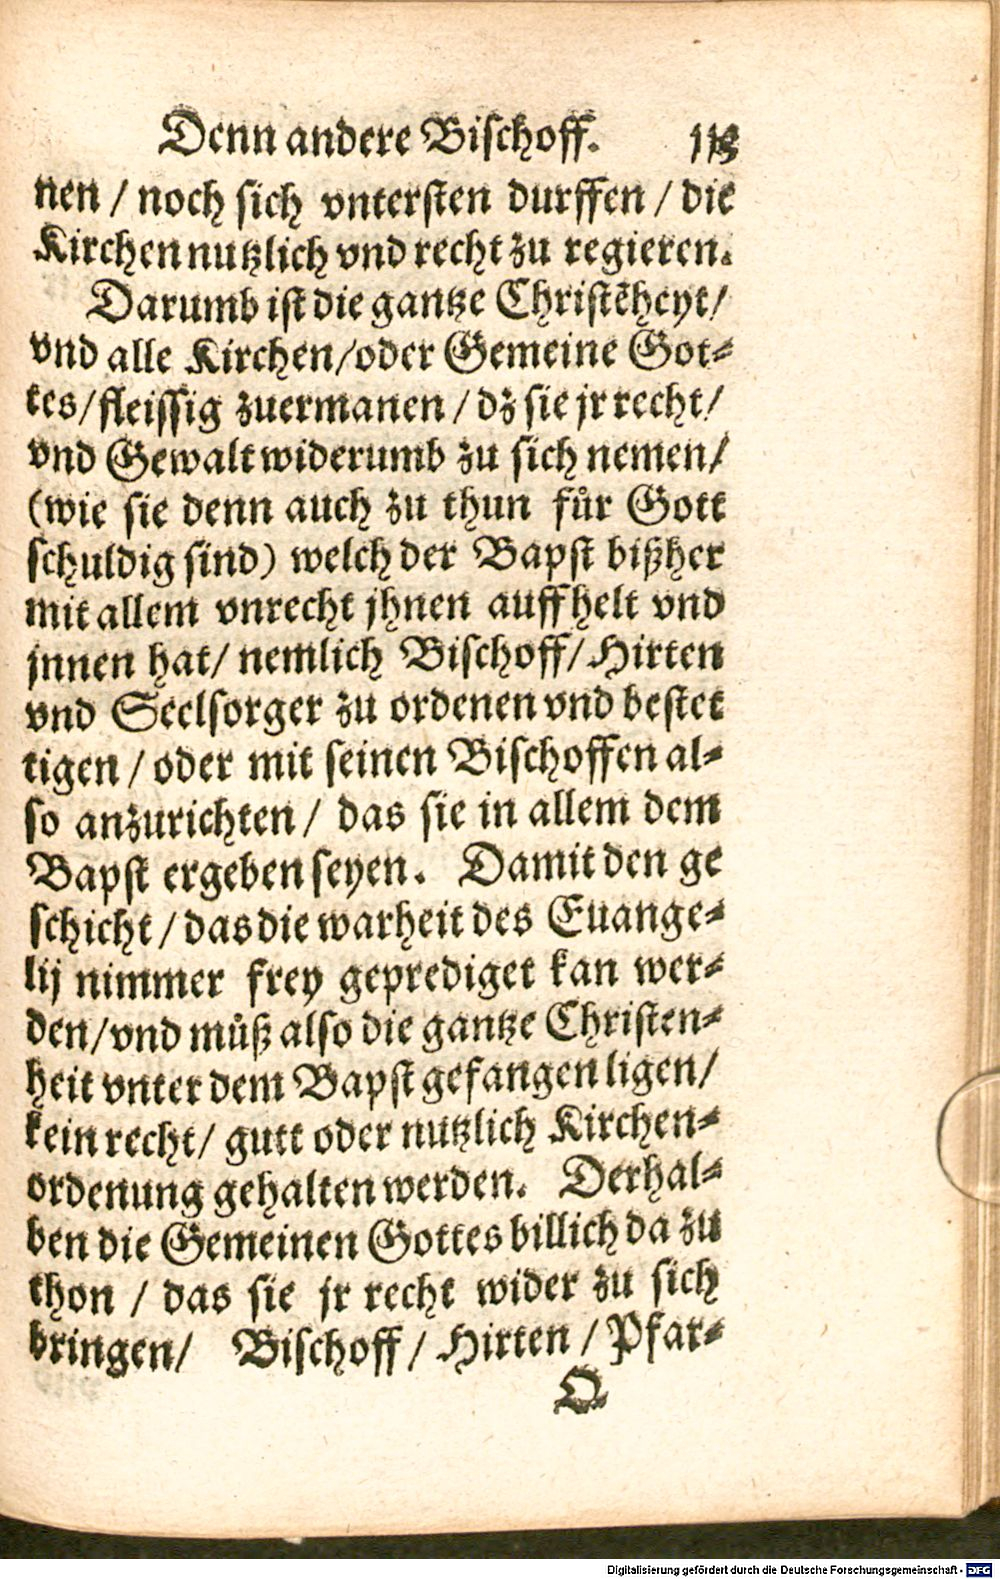 Denn andere Bischoff. 113
nen / noch sich vntersten durffen / die
Kirchen nutzlich vnd recht zu regieren.
Darumb ist die gantze Christẽheyt /
vnd alle Kirchen / oder Gemeine Got⸗
tes / fleissig zuermanen / dz sie jr recht /
vnd Gewalt widerumb zu sich nemen /
(wie sie denn auch zu thun fůr Gott
schuldig sind) welch der Bapst bißher
mit allem vnrecht jhnen auffhelt vnd
jnnen hat / nemlich Bischoff / Hirten
vnd Seelsorger zu ordenen vnd bestet
tigen / oder mit seinen Bischoffen al⸗
so anzurichten / das sie in allem dem
Bapst ergeben seyen. Damit den ge
schicht / das die warheit des Euange⸗
lij nimmer frey geprediget kan wer⸗
den / vnd můß also die gantze Christen⸗
heit vnter dem Bapst gefangen ligen /
kein recht / gutt oder nutzlich Kirchen⸗
ordenung gehalten werden. Derhal⸗
ben die Gemeinen Gottes billich da zu
thon / das sie jr recht wider zu sich
bringen / Bischoff / Hirten / Pfar⸗
O
Digitalisierung gefördert durch die Deutsche Forschungsgemeinschaft - DFG